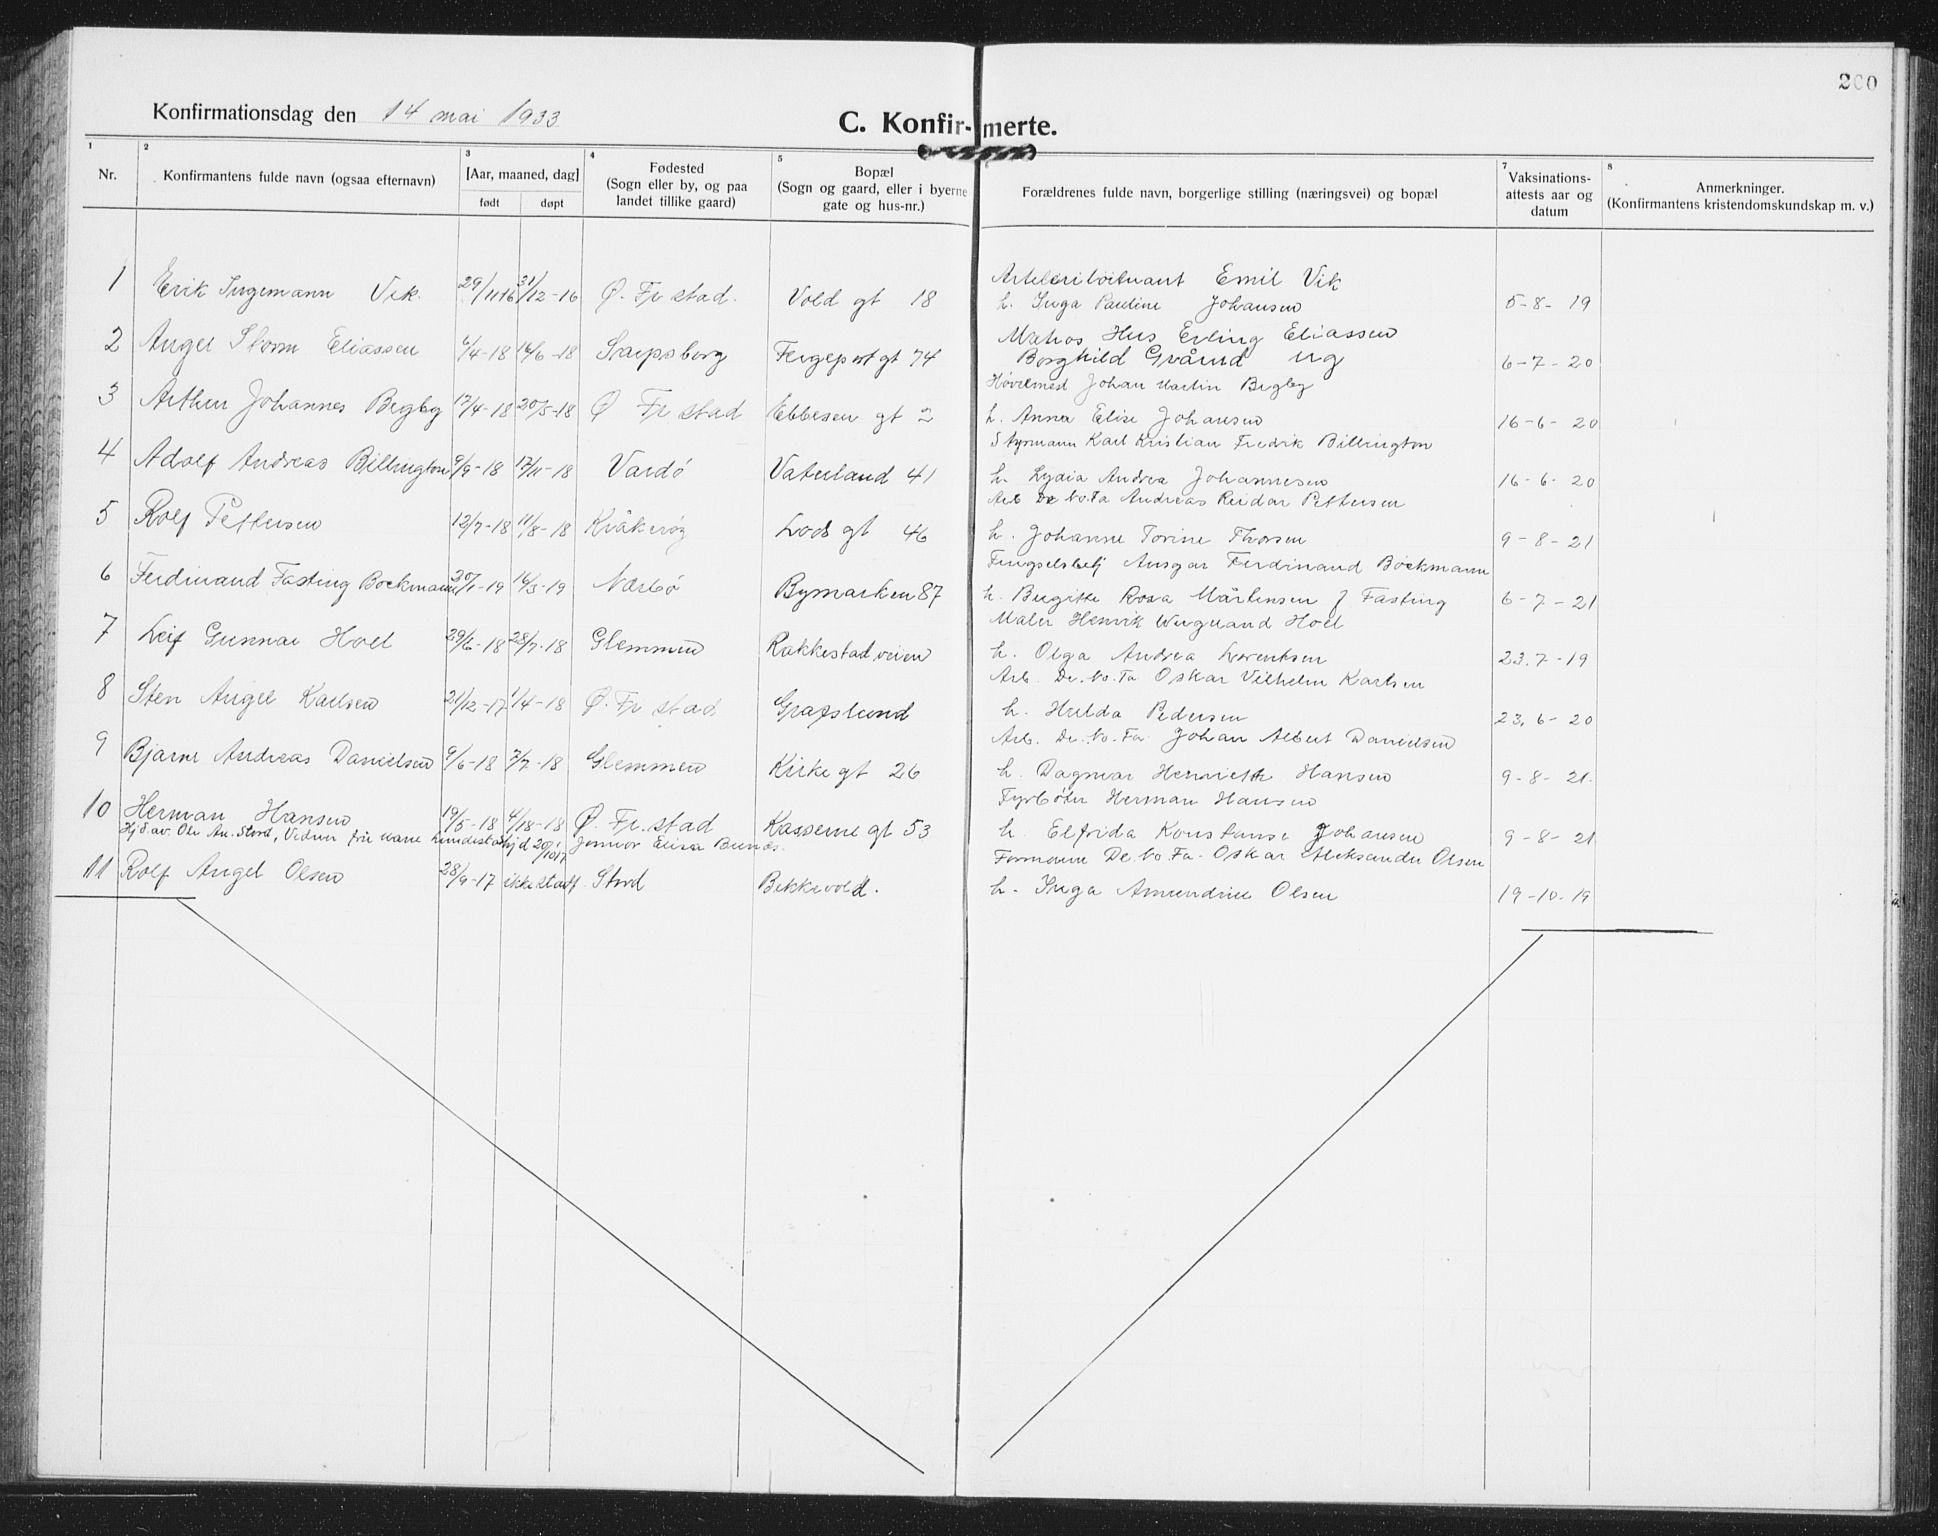 200
Konfirmationsdag den 14 mai 1933
C. Konfir- merte.
1 2 3 4 5 6 7 8
Nr.
Konfirmantens fulde navn (ogsaa efternavn)
[Aar, maaned, dag]
født døpt
Fødested
(Sogn eller by, og paa
landet tillike gaard)
Bopæl
(Sogn og gaard, eller i byerne
gate og hus-nr.)
Forældrenes fulde navn, borgerlige stilling (næringsvei) og bopæl
Vaksinations-
attests aar og
datum
Anmerkninger.
(Konfirmantens kristendomskundskap m. v.)
Emil Vik
1 Erik Ingemann Vik. 29/11-16 31/12-16 Ø. Fr stad. Vold gt 18 h. Inga Pauline Johansen 5-8-19
Matros Erling Eliassen
2 Angel Storm Eliassen 4-18 16/6-18 Sarpsborg Fergeport gt 74 Borghild ug 6-7-20
Johan Martin Begby
3 Arthur Johannes Begby 17/4-18 20/5-18 Ø Fr stad Ebbesen gt 2 h. Anna Elise Johansen 16-6-20
Styrmann Karl Kristian Fredrik Billington
4 Adolf Andreas Billington 9/9-18 17/11-18 Vardø Vaterland 41 h. Lydia Andrea Johannesen 16-6-20
Arb De No. Fa Andreas Reidar Pettersen
5 Rolf Pettersen 12/7-18 11/8-18 Kråkerøy Lods gt 46 h. Johanne Torine Thorsen 9-8-21
Fengselsbetj Ansgar Ferdinand Böckmann
6 Ferdinand Fasting Böckmann 30/1-19 16/3-19 Nærbø Bymarken 87 h. Birgitte Rosa Mårtensen f Fasting 6-7-21
Maler Henrik Hoel
7 Leif Gunnar Hoel 29/6-18 28/7-18 Glemmen Rakkestadveien h. Olga Andrea Lorentsen 23.7-19
Arb. De. No. Fa Oskar Vilhelm Karlsen
8 Sten Angel Karlsen 21/12-17 1/4-18 Ø. Fr stad Grafslund h. Hulda Pedersen 23.6-20
Arb. De. No. Fa. Johan Albert Danielsen
9 Bjarne Andreas Danielsen 9/6-18 7/7-18 Glemmen Kirke gt 26 h. Dagmar Henriette Hansen 9-8-21.
Fyrbøter Herman Hansen
10 Herman Hansen 19/5-18 4/18-18 Ø. Fr. stad Kaserne gt 53 h. Elfrida Konstanse Johansen 9-8-21
Hjd av Ole An. Stord, hjd 20/10 17 Jenner Elisa
Formann De. No. Fa. Oskar Aleksander Olsen
11 Rolf Angel Olsen 28/9-17 ikke stadf. Stord Bekkevold. h. Inga Amundine Olsen 19-10-19